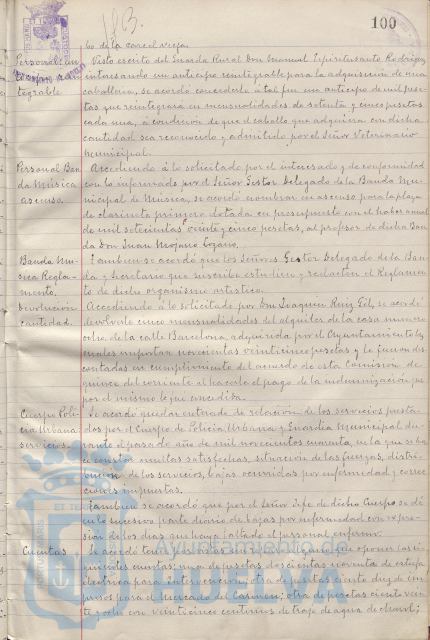 183.
100
to de la carcel vieja.
Personal an-
ticipo rein-
tegrable
Visto escrito del Guarda Rural Don Manuel Espiritusanto Rodriguez
interesando un anticipo reintegrable para la adquisición de una
caballeria, se acordó concederle á tal fin un anticipo de mil pese-
tas que reintegrará en mensualidades de setenta y cinco pesetas
cada una, á condición de que el caballo que adquiera con dicha
cantidad sea reconocido y admitido por el Señor Veterinario
municipal.
Personal Ban-
da Música
ascenso.
Accediendo á lo solicitado por el interesado y de conformidad
con lo informado por el Señor Gestor Delegado de la Banda Mu-
nicipal de Música, se acordó nombrar en ascenso para la plaza
de clarinete primero dotada en presupuesto con el haber anual
de mil setecientas veinte y cinco pesetas, al profesor de dicha Ban-
da Don Juan Mojano Lozano.
Banda Mú-
sica Regla-
mento.
Tambien se acordó que los Señores Gestor Delegado de la Ban-
da y Secretario que suscribe estudien y redacten el Reglamen-
to de dicho organismo artistico.
Devolución
cantidad.
Accediendo á lo solicitado por Don Joaquin Ruiz Gil, se acordó
devolverle cinco mensualidades del alquiler de la casa número
ocho de la calle Barcelona, adquirida por el Ayuntamiento las
cuales importan novecientas veinticinco pesetas y le fueron des-
contadas en cumplimiento del acuerdo de esta Comisión de
quince del corriente al hacerle el pago de la indemnización que
por el mismo le que concedida.
Cuerpo Poli-
cia Urbana
servicios.
Se acordó quedar enterada de relación de los servicios presta-
dos por el Cuerpo de Policia Urbana y Guardia Municipal du-
rante el pasado año de mil novecientos cuarenta, en la que se ha-
ce constar multas satisfechas, situación de las fuerzas, distri-
bución de los servicios, bajas ocurridas por enfermedad y correc-
ciones impuestas.
Tambien se acordó que por el Señor Jefe de dicho Cuerpo se dé
en lo sucesivo parte diario de bajas por enfermedad con expre-
sión de los dias que haya faltado el personal enfermo.
Cuentas
Se acordó
quientes cuentas; una de pesetas doscientas noventa de energia
electrica para Intervencion; otra de pesetas ciento diez de im-
presos para el Mercado del Carmen; otra de pesetas ciento vein-
te y ocho con veinticinco centimos de traje de agua de charol;
Ayuntamiento de